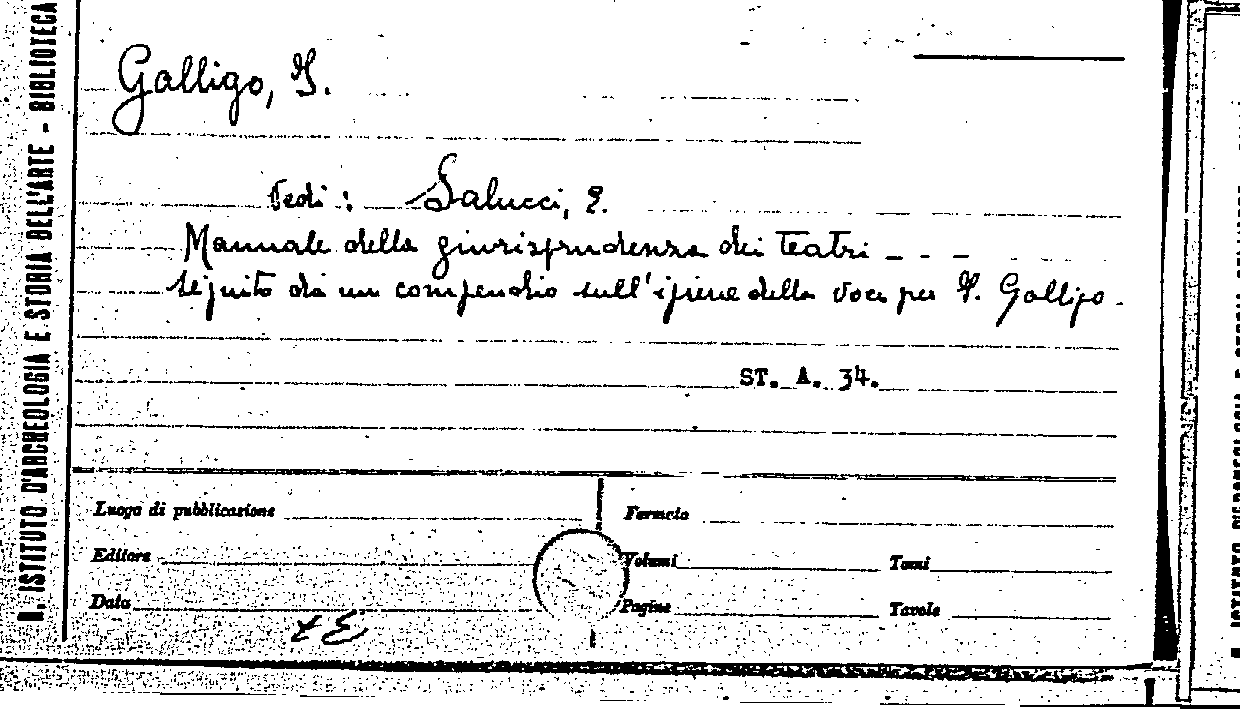 R. ISTITUTO D'ARCHEOLOGIA E STORIA DELL'ARTE - BIBLIOTECA
Galligo, I.
Vedi : Salucci, E.
Manuale della giurisprudenza dei teatri - - -
seguito da un compendio sull'igiene della voce per I. Galligo.
ST. A. 34.
Luogo di pubblicazione
Formato
Editore
Volumi
Tomi
Data
Pagine
Tavole